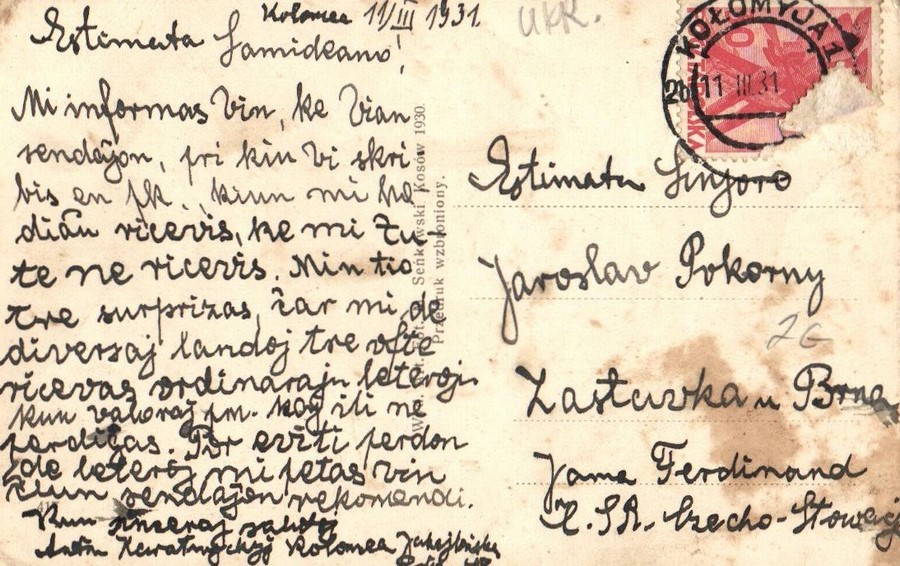 Kolomea 11/III 1931.
Estimata Samideano!
Mi informas Vin, ke Vian
sendaĵon, pri kiu Vi skri
bis en pk., kiun mi ho
diaŭ ricevis, ke mi tu-
te ne ricevis. Min tio
tre surprizas, ĉar mi de
diversaj landoj tre ofte
ricevas ordinarajn leterojn
kun valoraj pm. kaj ili ne
perdiĝas. Por eviti perdon
de leteroj mi petas Vin
ĉiun sendaĵon rekomendi.
Kun sinceraj salutoj
Kolomea
UKR.
KOŁOMYJA 1
2b 11 III.31
POLSKA
Senkowski Kosów 1930.
Przedruk wzbroniony.
Estimata Sinjoro
Jaroslav Pokorny
Zastavka u Brna
Jama Ferdinand
Czecho-Slowacja